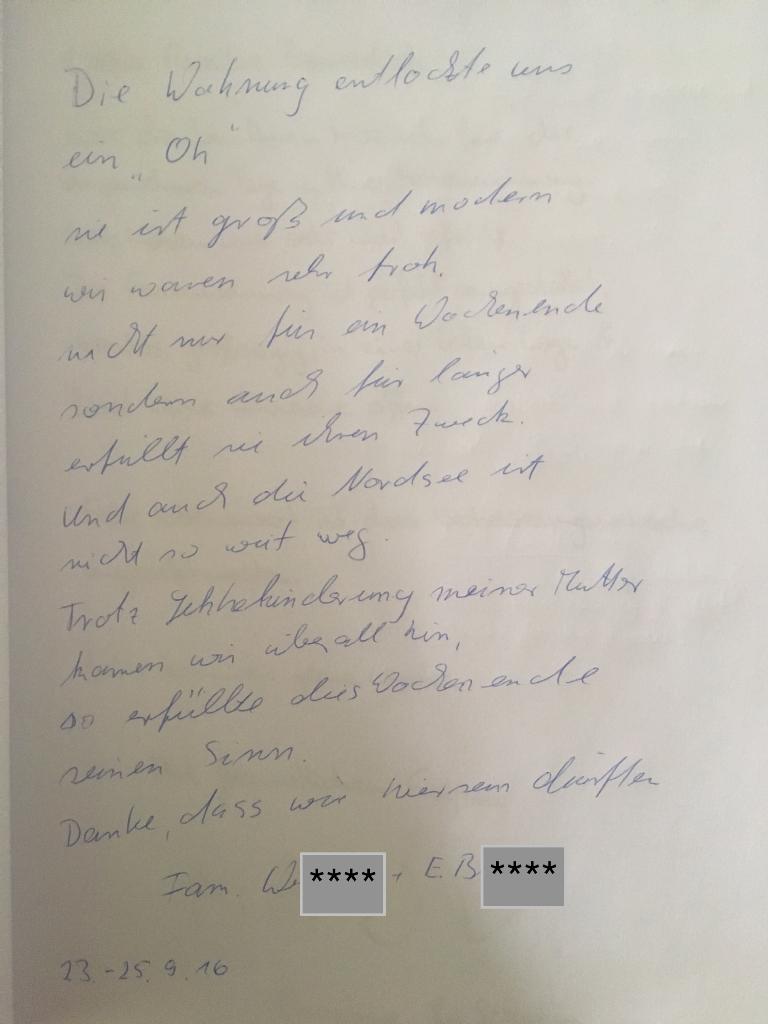 Die Wohnung entlockte uns
ein „Oh“
sie ist groß und modern
wir waren sehr froh.
nicht nur für ein Wochenende
sondern auch für länger
erfüllt sie ihren Zweck.
Und auch die Nordsee ist
nicht so weit weg.
Trotz Gehbehinderung meiner Mutter
kamen wir überall hin,
so erfüllte dies Wochenende
seinen Sinn.
Danke, dass wir hiersein durften
Fam. We**** + E. B****
23.-25.9.16